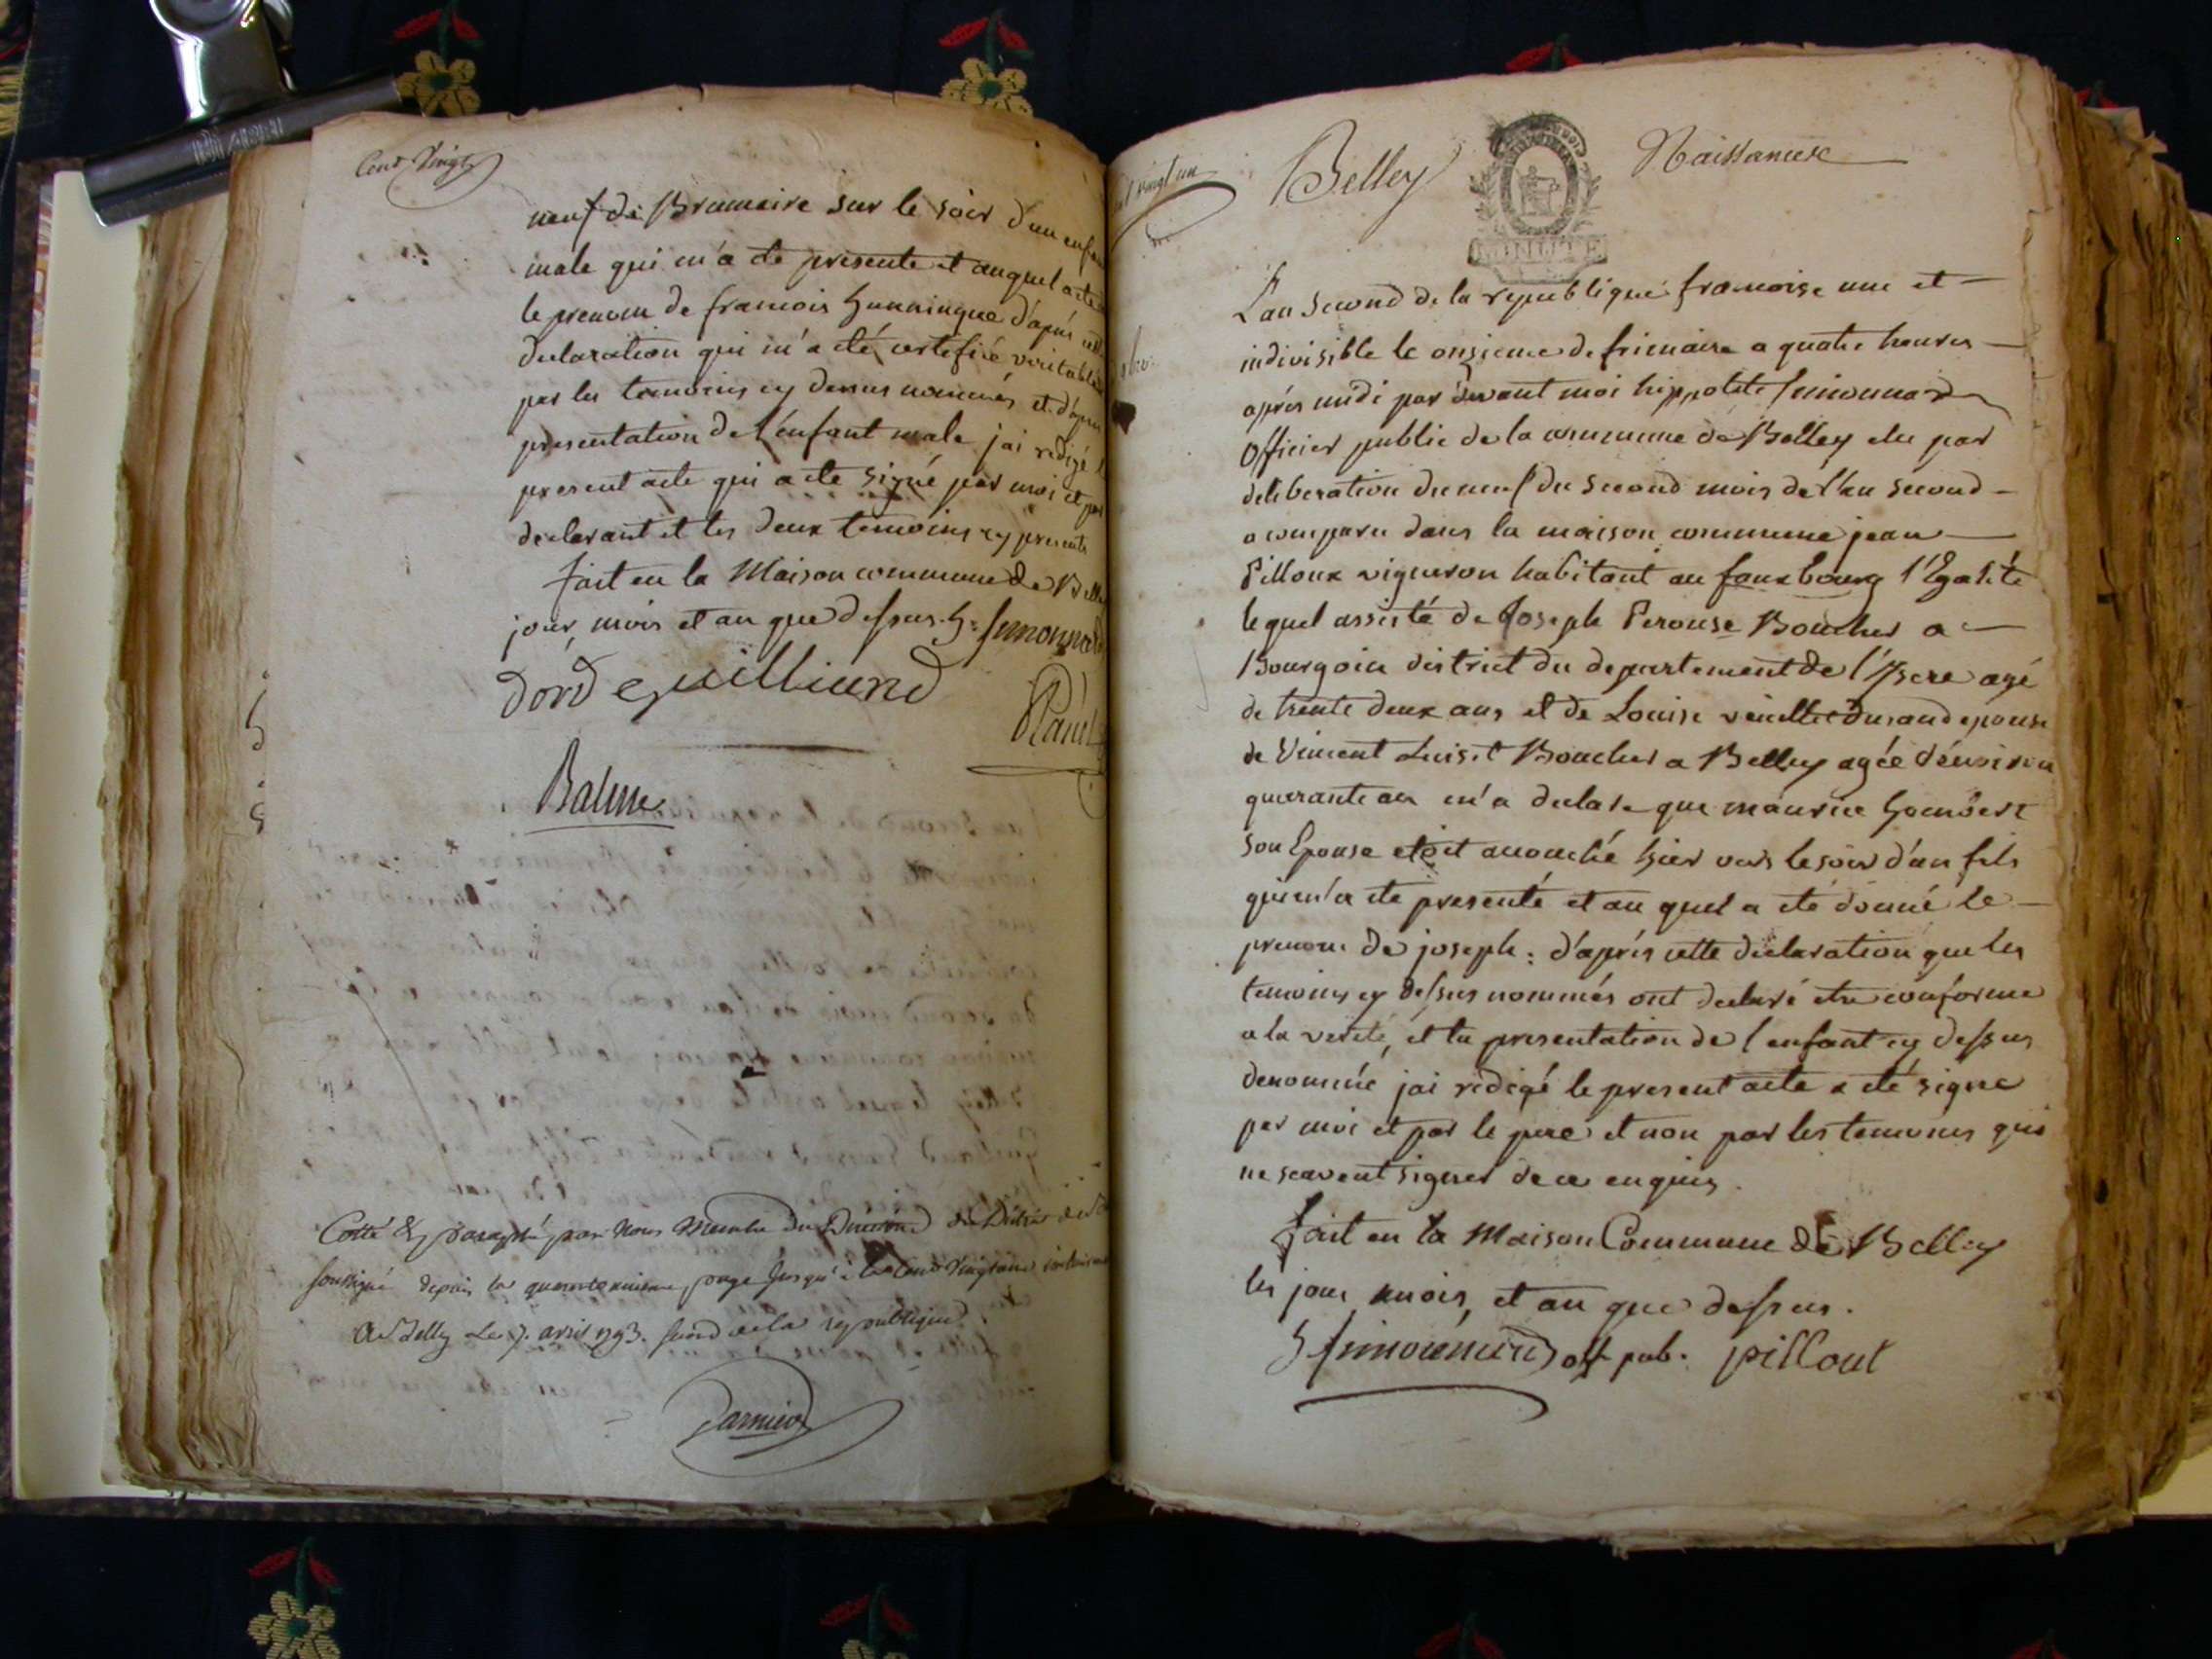 Cent Vingt
neuf de Brumaire sur le soir d'un enfan
male qui m'a ete presente et auquel a ete
le prenom de francois hunningue d'après cette
declaration qui m'a eté certifié veritable
par les temoins cy dessus nommés et d'apres
presentation de l'enfant male j'ai redigé l
present acte qui a ete signé par moi et par
declarant et les deux temoins cy presents
fait en la Maison commune de Belle
jour, mois et an que dessus. h: simonnard
dord guilliand
Balme
Cotté & paraphé par Nous Membre du Directoire du District de
soussigné depuis la page jusqu'à la Cent Vingt
A Belley Le 7. avril 1793. second de la republique
Belley
Naissances
L'an second de la republique francoise une et
indivisible le onzieme de frimaire a quatre heures
après midi par devant moi hippolite simonnard
Officier public de la commune de Belley elu par
deliberation du neuf du second mois de l'an second
a comparu dans la maison commune jean
Pilloux vigneron habitant au fauxbourg l'Egalité
lequel assisté de Joseph Perouse Boucher a
Bourgoin district du departement de l'Isere agé
de trente deux ans et de Louise Durand epouse
de Vincent Luiset Boucher a Belley agée d'environ
quarante ans m'a declare que maurice
son Epouse etoit accouché hier vers le soir d'un fils
qui m'a ete presenté et au quel a eté donné le
prenom de joseph: d'après cette declaration que les
temoins cy dessus nommés ont declaré etre conforme
a la verité, et la presentation de l'enfant cy dessus
denommé jai redigé le present acte a eté signe
par moi et par le pere et non par les temoins qui
ne scavent signer de ce enquis.
fait en la Maison Commune de Belley
les jour, mois, et an que dessus.
h simonnard off pub. pillout